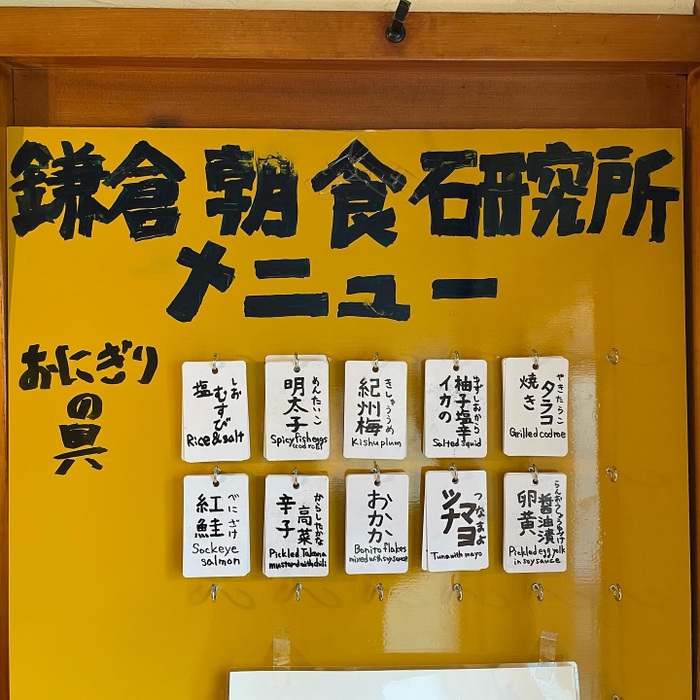 鎌倉 朝食研究所
メニュー
おにぎり
の
具
しお
塩むすび
Rice & salt
めんたいこ
明太子
Spicy fish eggs
(cod roe)
きしゅううめ
紀州梅
Kishu plum
柚子塩辛
イカの
Salted squid
やきたらこ
焼きタラコ
Grilled cod roe
べにざけ
紅鮭
Sockeye
salmon
からしたかな
辛子高菜
Pickled Takana
mustard with chili
おかか
Bonito flakes
mixed with soy sauce
つなまよ
ツナマヨ
Tuna with mayo
醤油漬
卵黄
Pickled egg yolk
in soy sauce